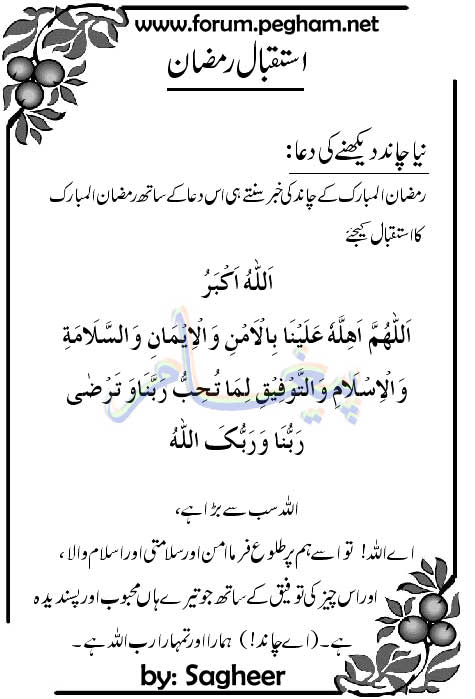 www.forum.pegham.net
استقبال رمضان
نیا چاند دیکھنے کی دعا:
رمضان المبارک کے چاند کی خبر سنتے ہی اس دعا کے ساتھ رمضان المبارک
کا استقبال کیجئے
اَللّٰهُ اَکْبَرُ
اَللّٰهُمَّ اَهِلَّهٗ عَلَیْنَا بِالْاَمْنِ وَالْاِیْمَانِ وَالسَّلَامَةِ
وَالْاِسْلَامِ وَالتَّوْفِیْقِ لِمَا تُحِبُّ رَبَّنَا وَ تَرْضٰی
رَبُّنَا وَرَبُّکَ اللّٰهُ
پیغام
اللہ سب سے بڑا ہے،
اے اللہ! تو اسے ہم پر طلوع فرما امن اور سلامتی اور اسلام والا،
اور اس چیز کی توفیق کے ساتھ جو تیرے ہاں محبوب اور پسندیدہ
ہے۔ (اے چاند!) ہمارا اور تمہارا رب اللہ ہے۔
by: Sagheer